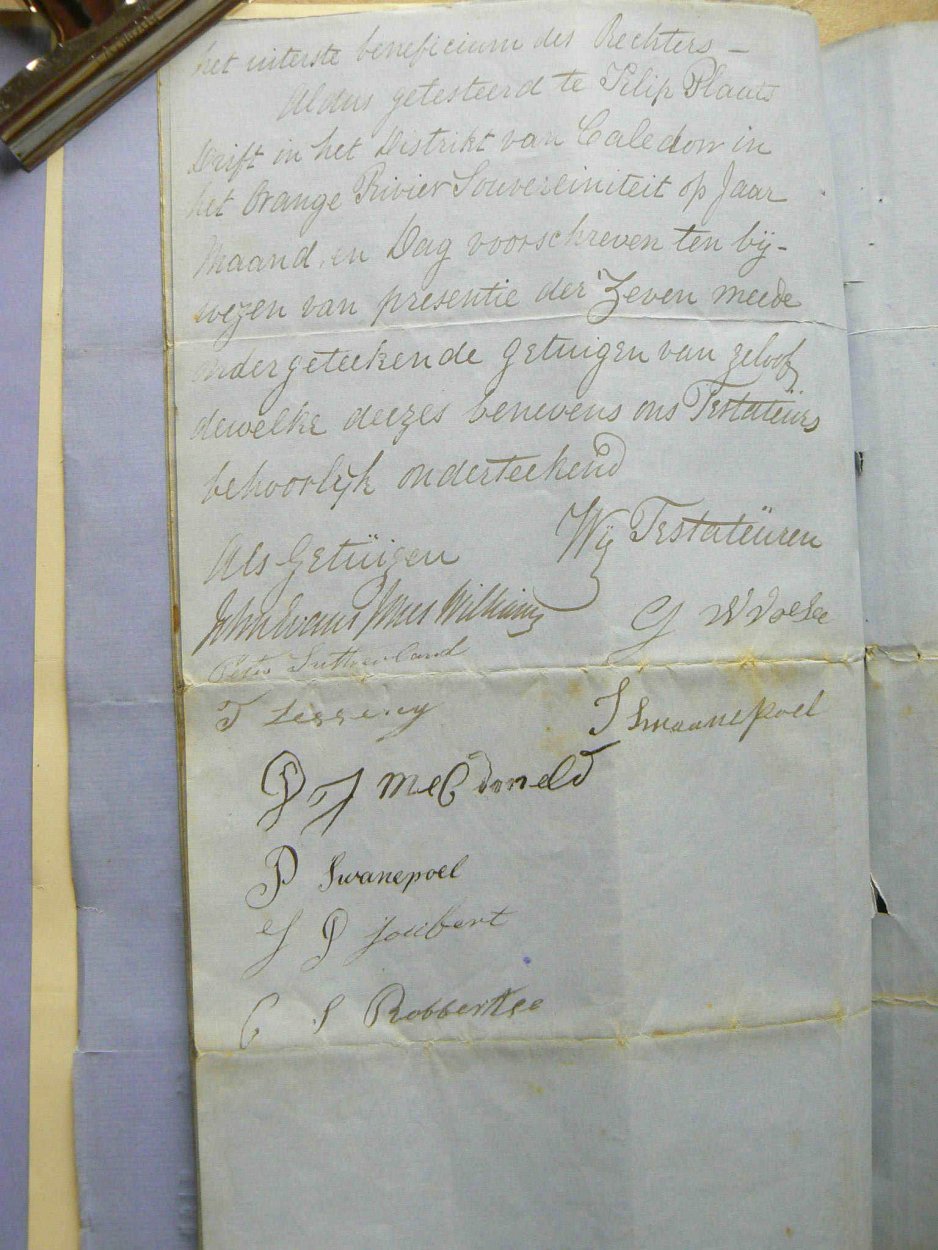 het uiterste beneficium des Rechters –
Aldus getesteerd te Filip Plaats
Drift in het Distrikt van Caledon in
het Orange Rivier Souvereiniteit op Jaar
Maand, en Dag voorschreven ten bij-
wezen van presentie der Zeven meede
ondergeteekende getuigen van geloof
dewelke deezes benevens ons Testateürs
behoorlijk onderteekend
Als Getüigen
Wij Testateüren
John Evans James Williams
Peter Sutherland
T
J Swaanepoel
P J McCdoneld
P Swanepoel
J P Joubert
C S Robbertse